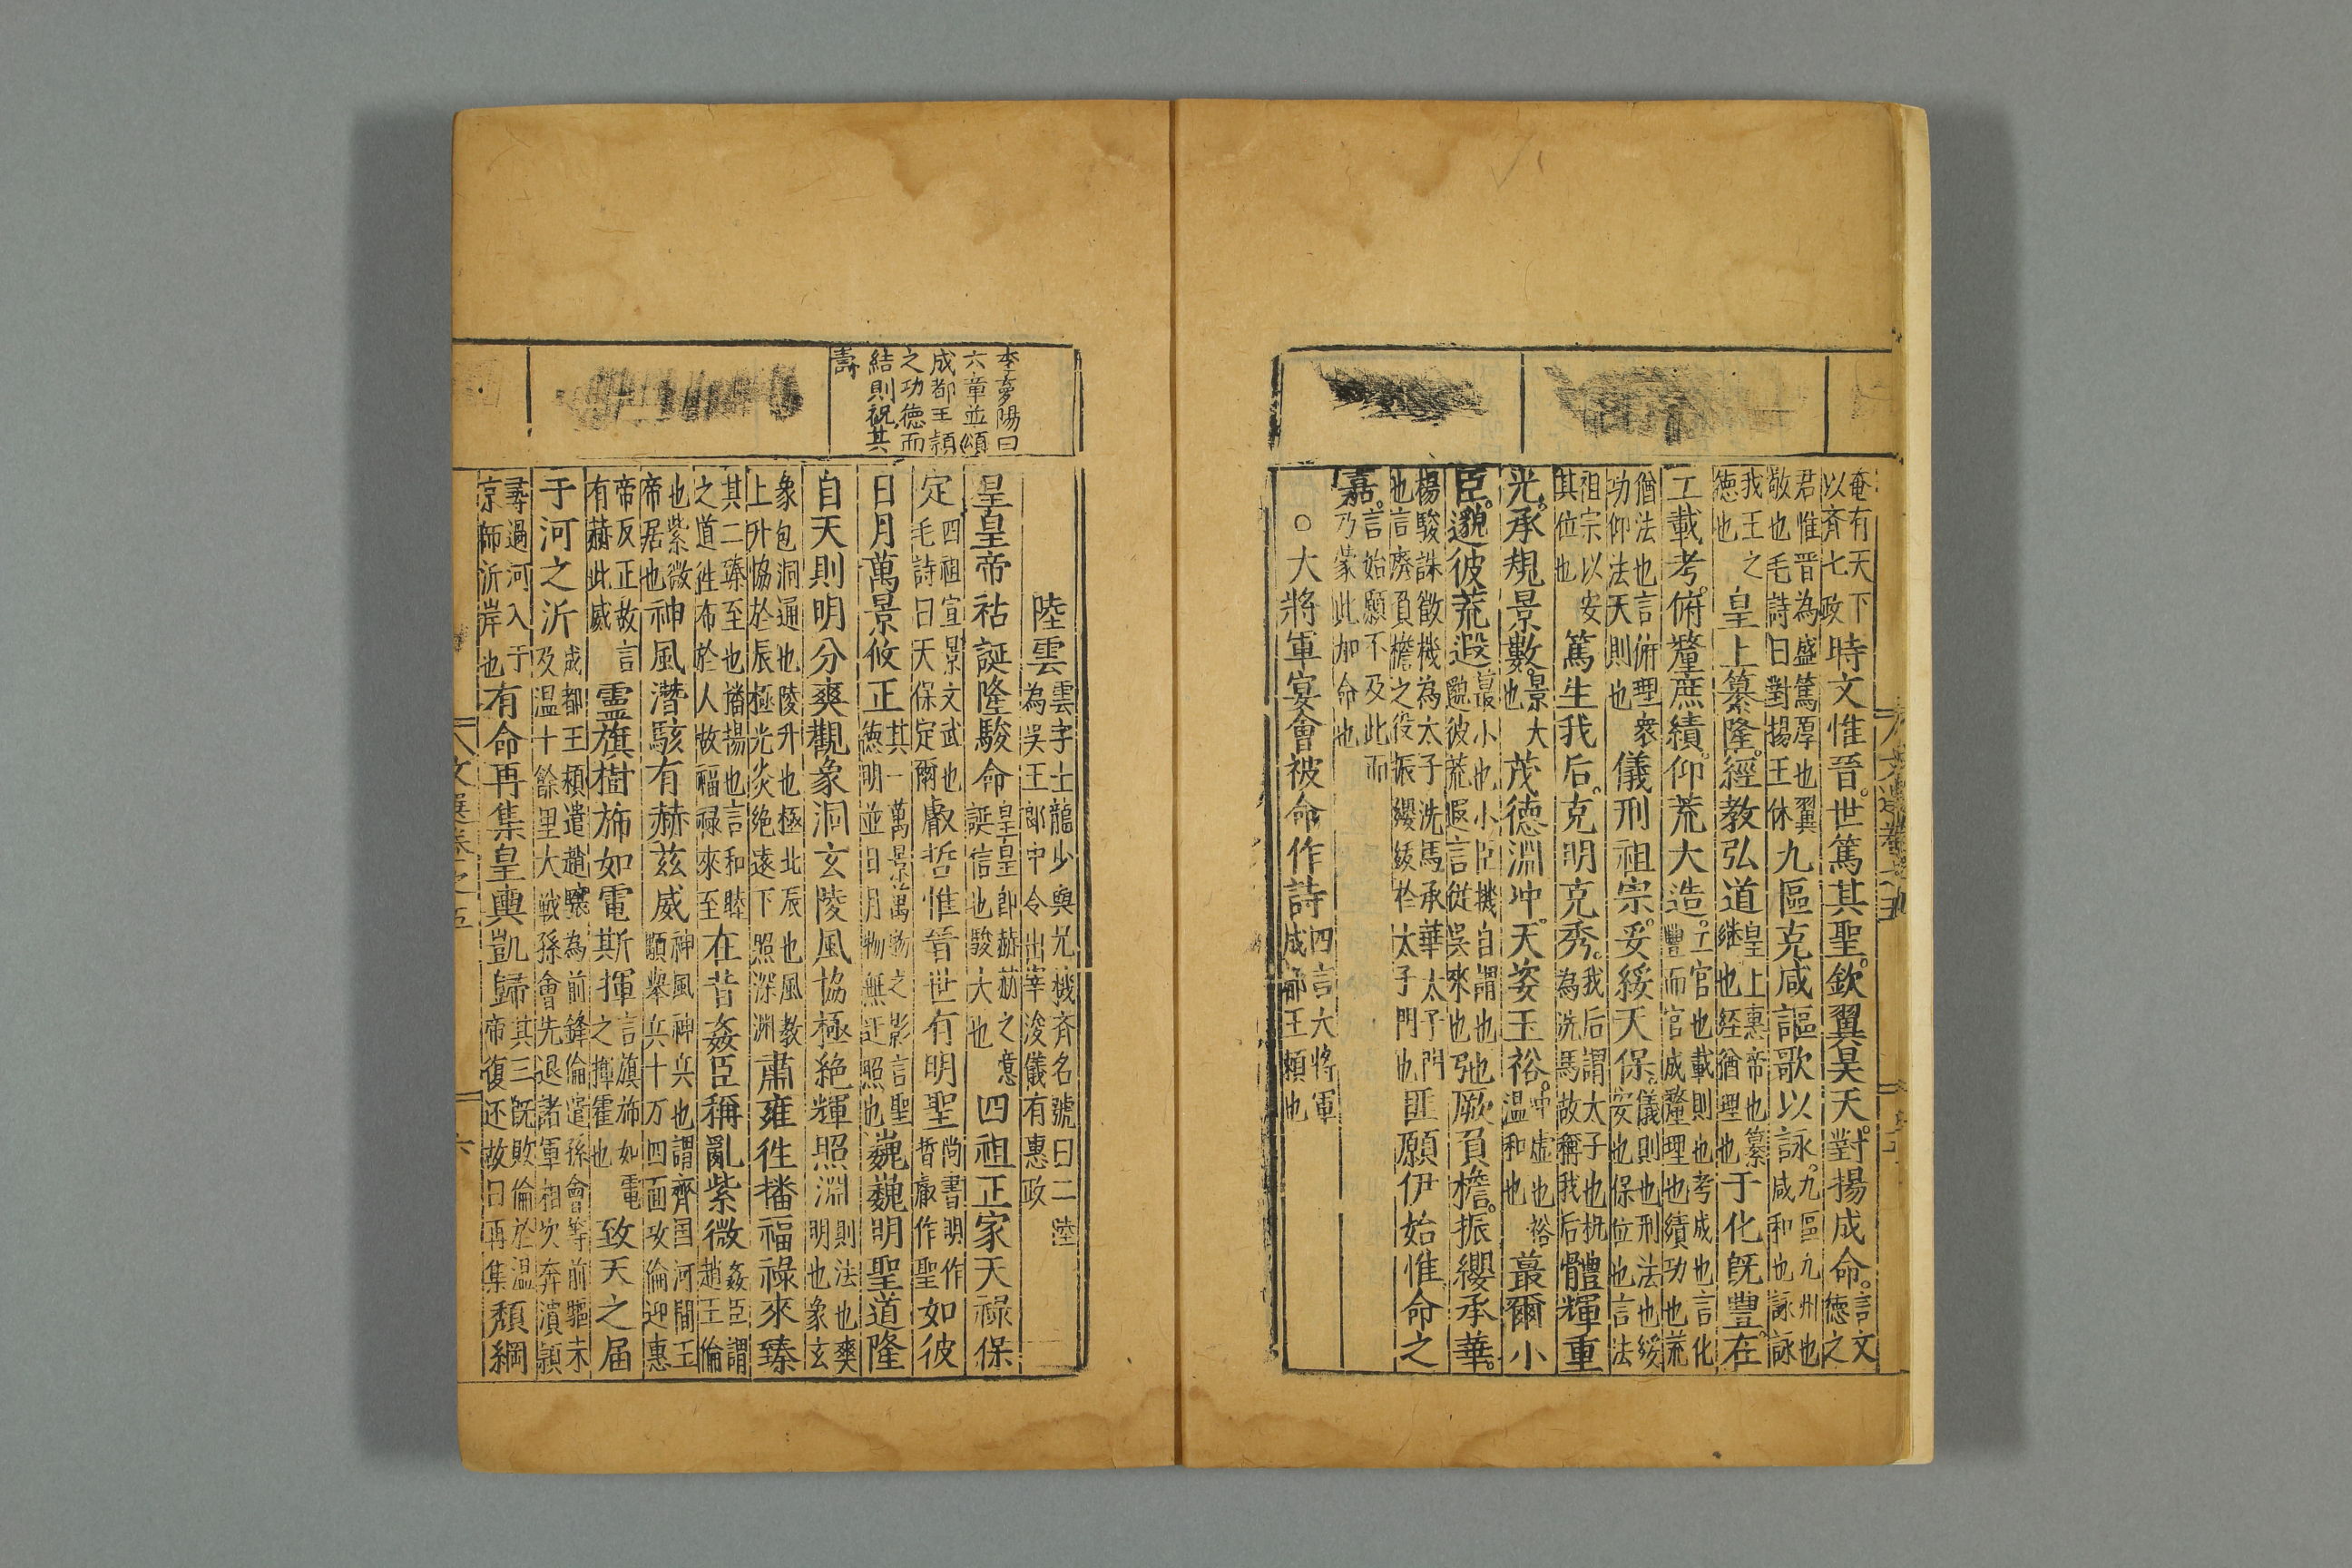 奄有天下
以齊七政
時文惟晉。世篤其聖。欽翼昊天。對揚成命。
言文
德之
君惟晉為盛篤厚也翼
敬也毛詩曰對揚王休
九區克咸謳歌以詠。
九區九州也
咸和也詠詠
我王之
德也
皇上纂隆。經教弘道
皇上惠帝也纂
継也経猶理也
于化既豐在
工載考。俯釐庶績。仰荒大造。
工官也載則也考成也言化
豐而官成釐理也績功也荒
猶法也言俯理衆
功仰法天則也
儀刑祖宗。妥綏天保。
儀則也刑法也綏
安也保位也言法
祖宗以安
其位也
篤生我后。克明克秀。
我后謂太子也机
為洗馬故稱我后
體輝重
光。承規景數。
景大
也
茂德淵冲。天姿玉裕。
冲虛也裕
温和也
蕞爾小
臣。邈彼荒遐
蕞小也小臣機自謂也
邈彼荒遐言従吳來也
弛厥負檐。振纓承華。
楊駿誅徵機為太子洗馬承華太子門
也言廃負檐之役振纓緌於太子門也
匪願伊始惟命之
嘉。
言始願不及此而
乃蒙此加命也
○大將軍宴會被命作詩
四言大將軍
成都王穎也
李夢陽曰
六章並頌
成都王穎
之功德而
結則祝其
壽
陸雲
雲字士龍少與兄機齊名號曰二陸
為吳王郎中令出宰浚儀有惠政
皇皇帝祜誕隆駿命
皇皇即赫赫之意
誕信也駿大也
四祖正家天祿保
定
四祖宣景文武也
毛詩曰天保定爾
叡哲惟晉世有明聖
尚書明作
哲叡作聖
如彼
日月萬景攸正
其一萬景萬物之影言聖
德明並日月物無迂照也
巍巍明聖道隆
自天則明分爽觀象洞玄陵風協極絶輝照淵
則法也爽
明也象玄
象包洞通也陵升也極北辰也風教
上升協於辰極光炎絶遠下照深渊
肅雍徃播福祿來臻
其二臻至也播揚也言和睦
之道徃布於人故福禄來至
在昔姦臣稱亂紫微
姦臣謂
趙王倫
也紫微
帝居也
神風潛駭有赫茲威
神風神兵也謂齊国河間王
顒舉兵十万四面攻倫迎惠
帝反正故言
有赫此威
靈旗樹斾如電斯揮
言旗斾如電
之揮霍也
致天之届
于河之沂
成都王穎遣趙驤為前鋒倫遣孫會等前驅未
及温十餘里大戦孫會先退諸軍相次奔潰穎
尋過河入于
京師沂岸也
有命再集皇輿凱歸
其三既敗倫於温
帝復还故曰再集
頹綱
六